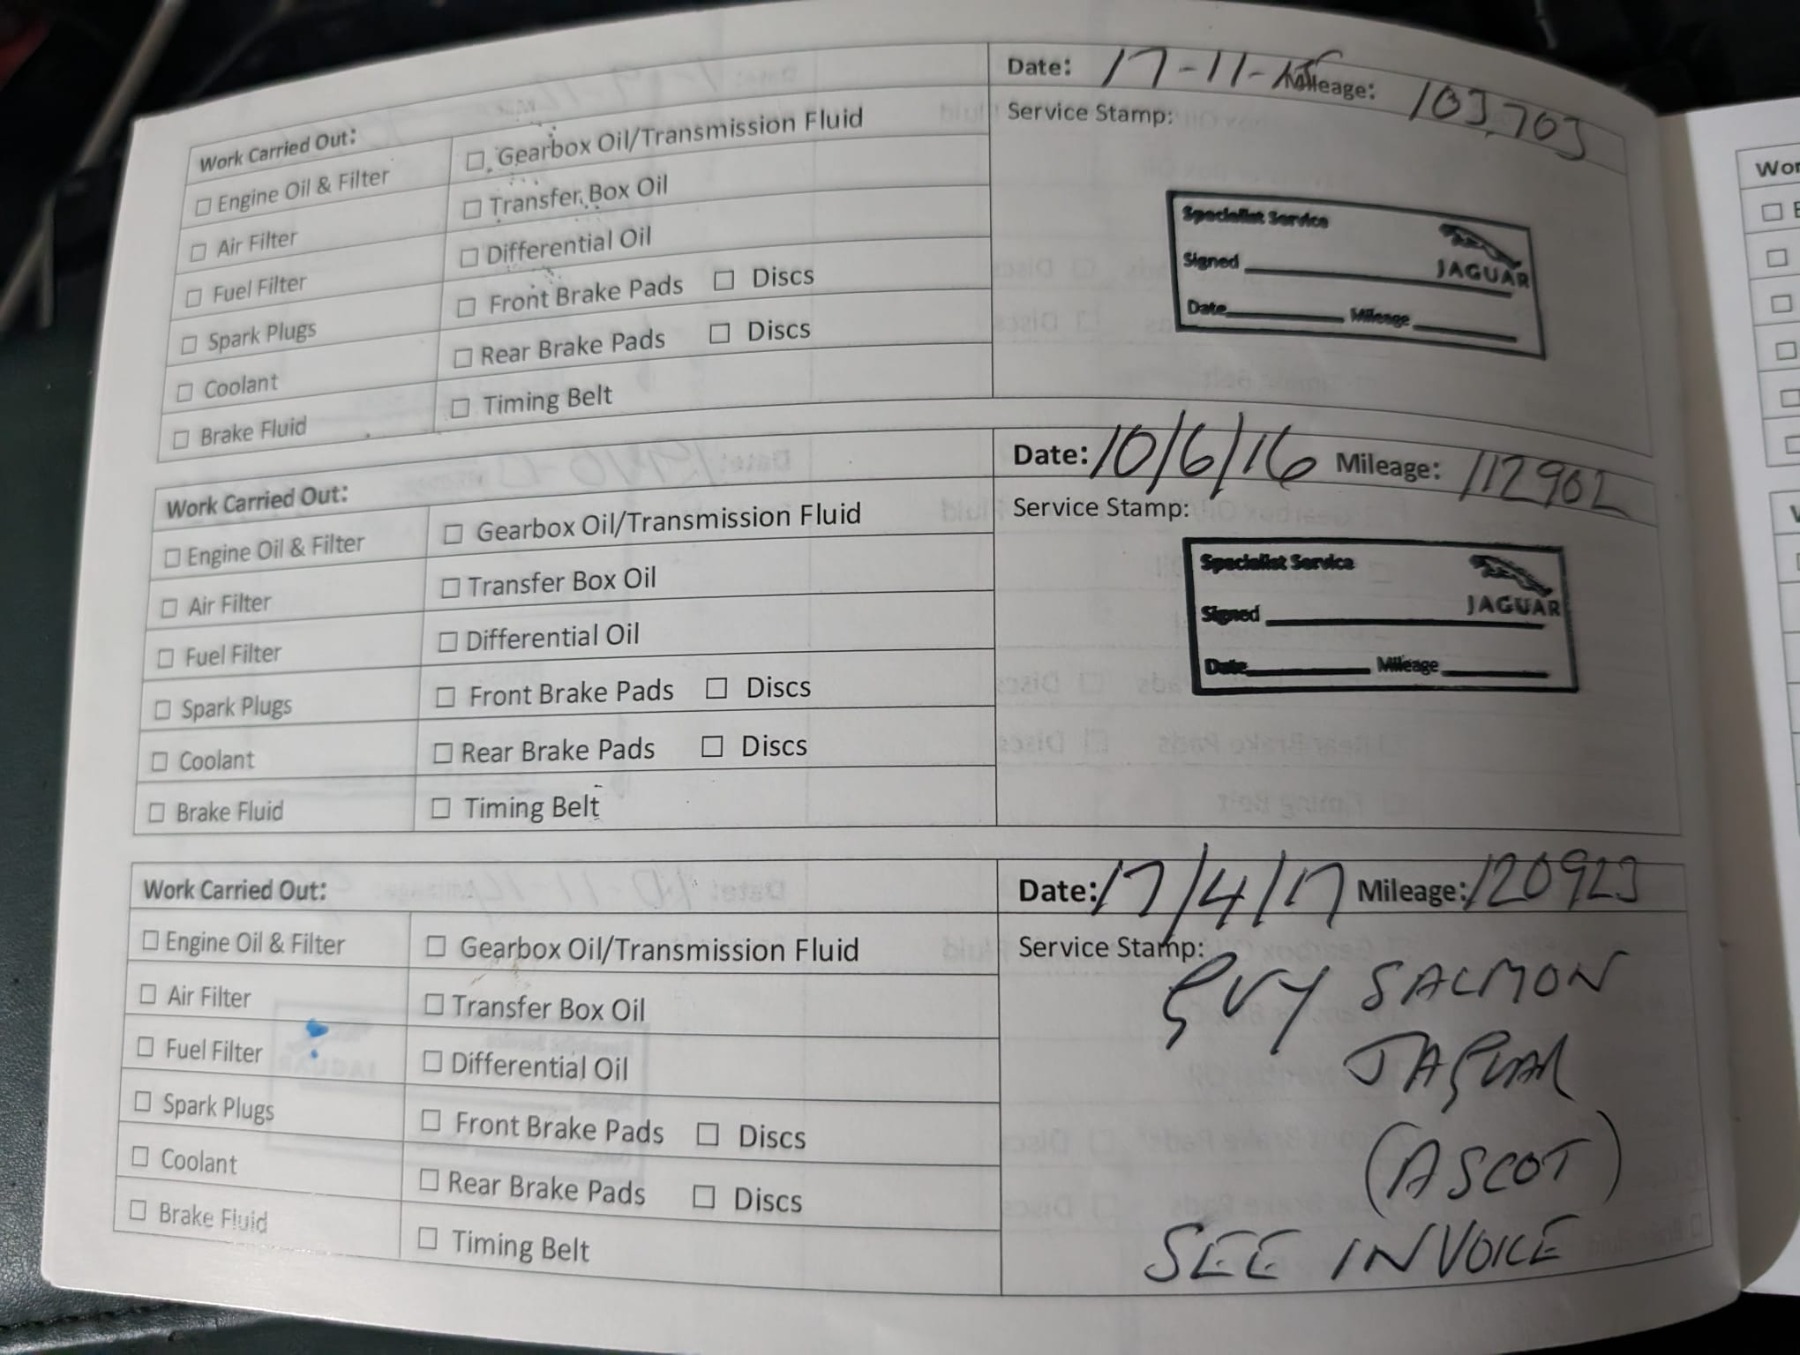 Date: 17-11-15 Mileage: 103,703
Work Carried Out:
Service Stamp:
Engine Oil & Filter
Gearbox Oil/Transmission Fluid
Air Filter
Transfer Box Oil
Fuel Filter
Differential Oil
Spark Plugs
Front Brake Pads Discs
Coolant
Rear Brake Pads Discs
Brake Fluid
Timing Belt
Specialist Service
Signed
JAGUAR
Date Mileage
Date: 10/6/16 Mileage: 112902
Work Carried Out:
Service Stamp:
Engine Oil & Filter
Gearbox Oil/Transmission Fluid
Air Filter
Transfer Box Oil
Fuel Filter
Differential Oil
Spark Plugs
Front Brake Pads Discs
Coolant
Rear Brake Pads Discs
Brake Fluid
Timing Belt
Specialist Service
Signed
JAGUAR
Date Mileage
Work Carried Out:
Date: 17/4/17 Mileage: 120923
Engine Oil & Filter
Gearbox Oil/Transmission Fluid
Air Filter
Transfer Box Oil
Fuel Filter
Differential Oil
Spark Plugs
Front Brake Pads Discs
Coolant
Rear Brake Pads Discs
Brake Fluid
Timing Belt
Service Stamp:
GUY SALMON
JAGUAR
(ASCOT)
SEE INVOICE